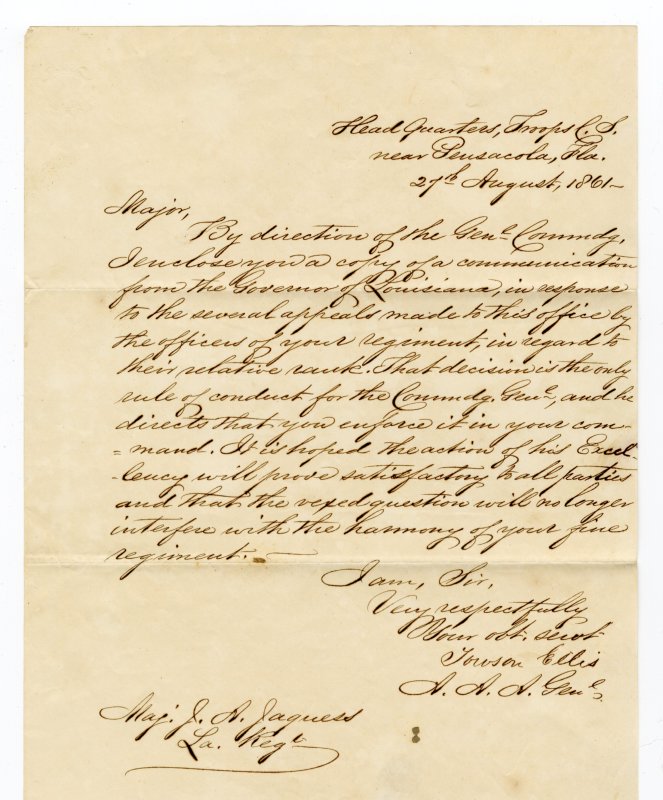 Head Quarters, Troops C. S.
near Pensacola, Fla.
27th August, 1861-
Major,
By direction of the Genl. Commdg,
I enclose you a copy of a communication
from the Governor of Louisiana, in response
to the several appeals made to this office by
the officers of your regiment, in regard to
their relative rank. That decision is the only
rule of conduct for the Commdg. Genl, and he
directs that you enforce it in your com-
-mand. It is hoped the action of his Excel-
-lency will prove satisfactory to all parties
and that the vexed question will no longer
interfere with the harmony of your fine
regiment. —
I am, Sir,
Very respectfully
Your obt. servt
Towson Ellis
A. A. A. Genl.
Maj. J. A. Jaquess
La. Regt